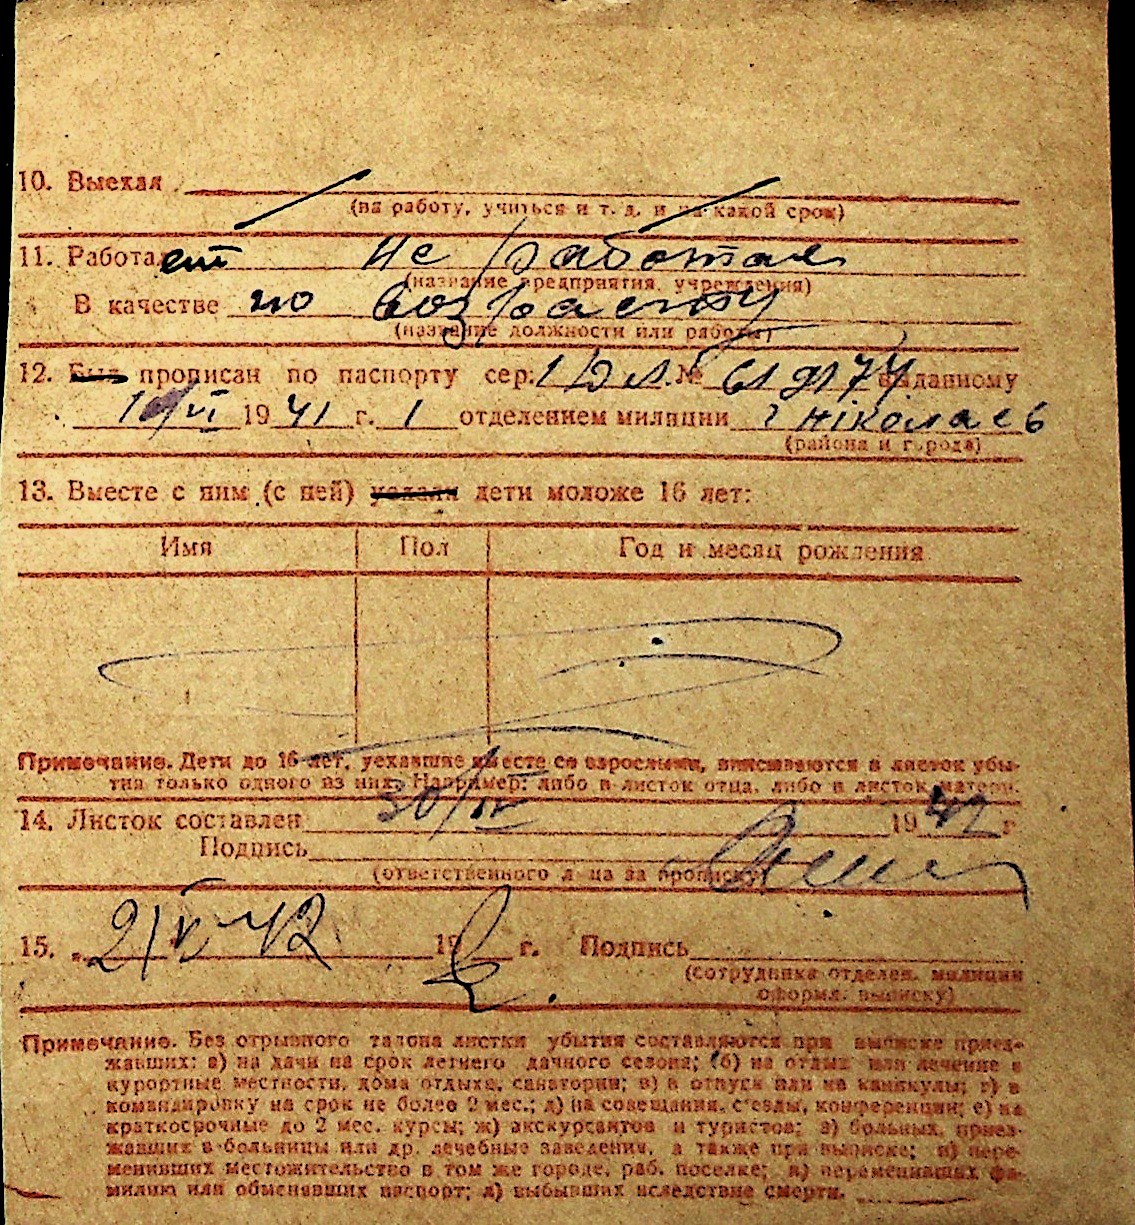 10. Выехал
(на работу, учиться и т. д. и на какой срок)
11. Работает не работает
(название предприятия, учреждения)
В качестве по возрасту
(название должности или работы)
12. Был прописан по паспорту сер: № выданному
19 41 г. 1 отделением милиции г Ніколаев
(района и города)
13. Вместе с ним (с ней) уехали дети моложе 16 лет:
Имя Пол Год и месяц рождения
Примечание. Дети до 16 лет, уехавшие вместе со взрослыми, вписываются в листок убы-
тия только одного из них. Например: либо в листок отца, либо в листок матери.
14. Листок составлен 30/IV 19 42 г
Подпись
(ответственного лица за прописку)
15. 21/V 42 19 г. Подпись
(сотрудника отделен. милиции
оформл. выписку)
Примечание. Без отрывного талона листки убытия составляются при выписке приез-
жавших: а) на дачи на срок летнего дачного сезона; б) на отдых или лечение в
курортные местности, дома отдыха, санатории; в) в отпуск или на каникулы; г) в
командировку на срок не более 2 мес.; д) на совещания, с'езды, конференции; е) на
краткосрочные до 2 мес. курсы; ж) экскурсантов и туристов; з) больных, приез-
жавших в больницы или др. лечебные заведения, а также при выписке; и) пере-
менивших местожительство в том же городе, раб. поселке; к) переменивших фа-
милию или обменявших паспорт; л) выбывших вследствие смерти.